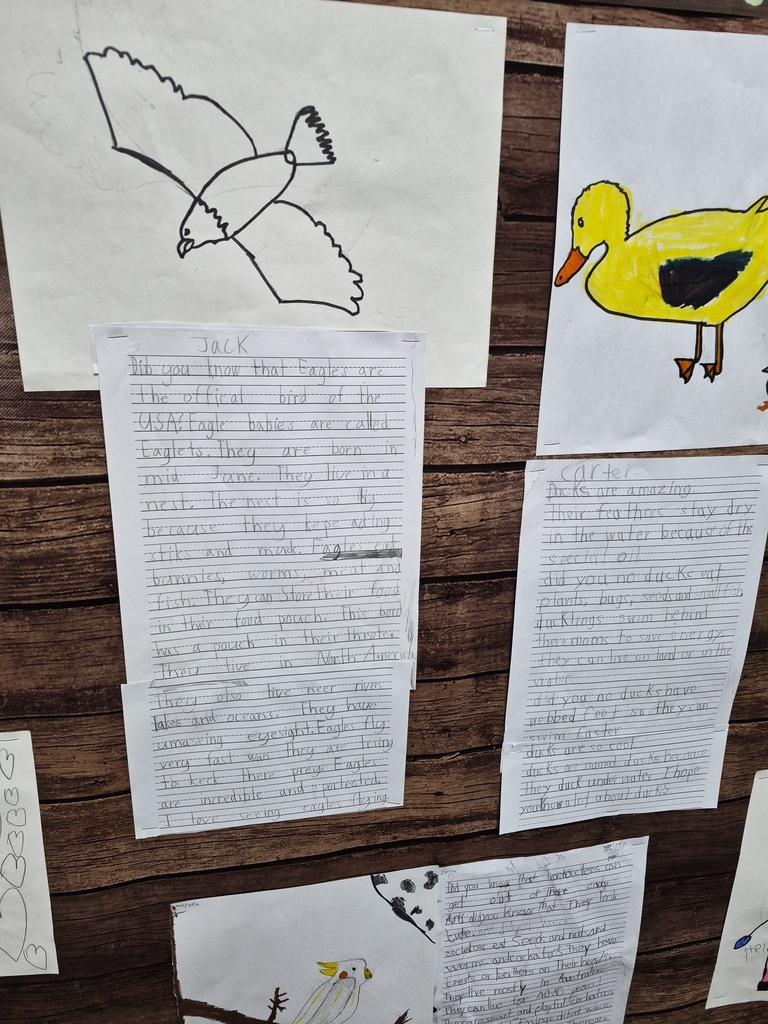 Jack
Did you know that Eagles are
the offical bird of the
USA? Eagle babies are called
Eaglets. They are born in
mid June. They live in a
nest. The nest is so big
because they kepe ading
stiks and muck. Eagles eat
bunnies, worms, ment and
fish. They can store their food
in their food pouch. This bord
has a pouch in their throte.
They live in North America
They also live neer rivers
lakes and oceans. They have
umasving eyesight. Eagles fly
very fast wan they are triing
to keck there prey. Eagles
are incredible and portected.
I love seeing eagles flying
Carter
Ducks are amazing.
Their feathers stay dry
in the water because of the
special oil
did you no ducks eat
plants, bugs, seeds and small fish.
ducklings swim behind
there moms to save energy.
They can live on land or in the
water.
did you no ducks have
webbed feet so they can
swim faster
duck are so cool
ducks are named ducks because
They duck under water I hope
you know a lot about ducks
Did you know that can
get out of there
And did you know that They look
cute.
eat Seeds and nuts and
worms and They have
crests or feathers on Their heads.
They live mostly in Australia
They can live for
and playful